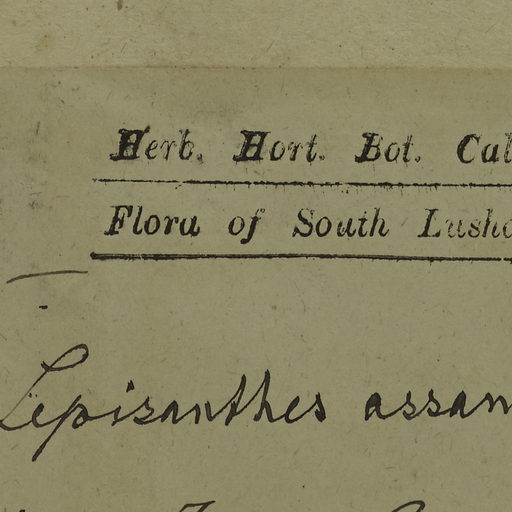 Herb. Hort. Bot. Cal
Flora of South Lusha
Lepisanthes assam